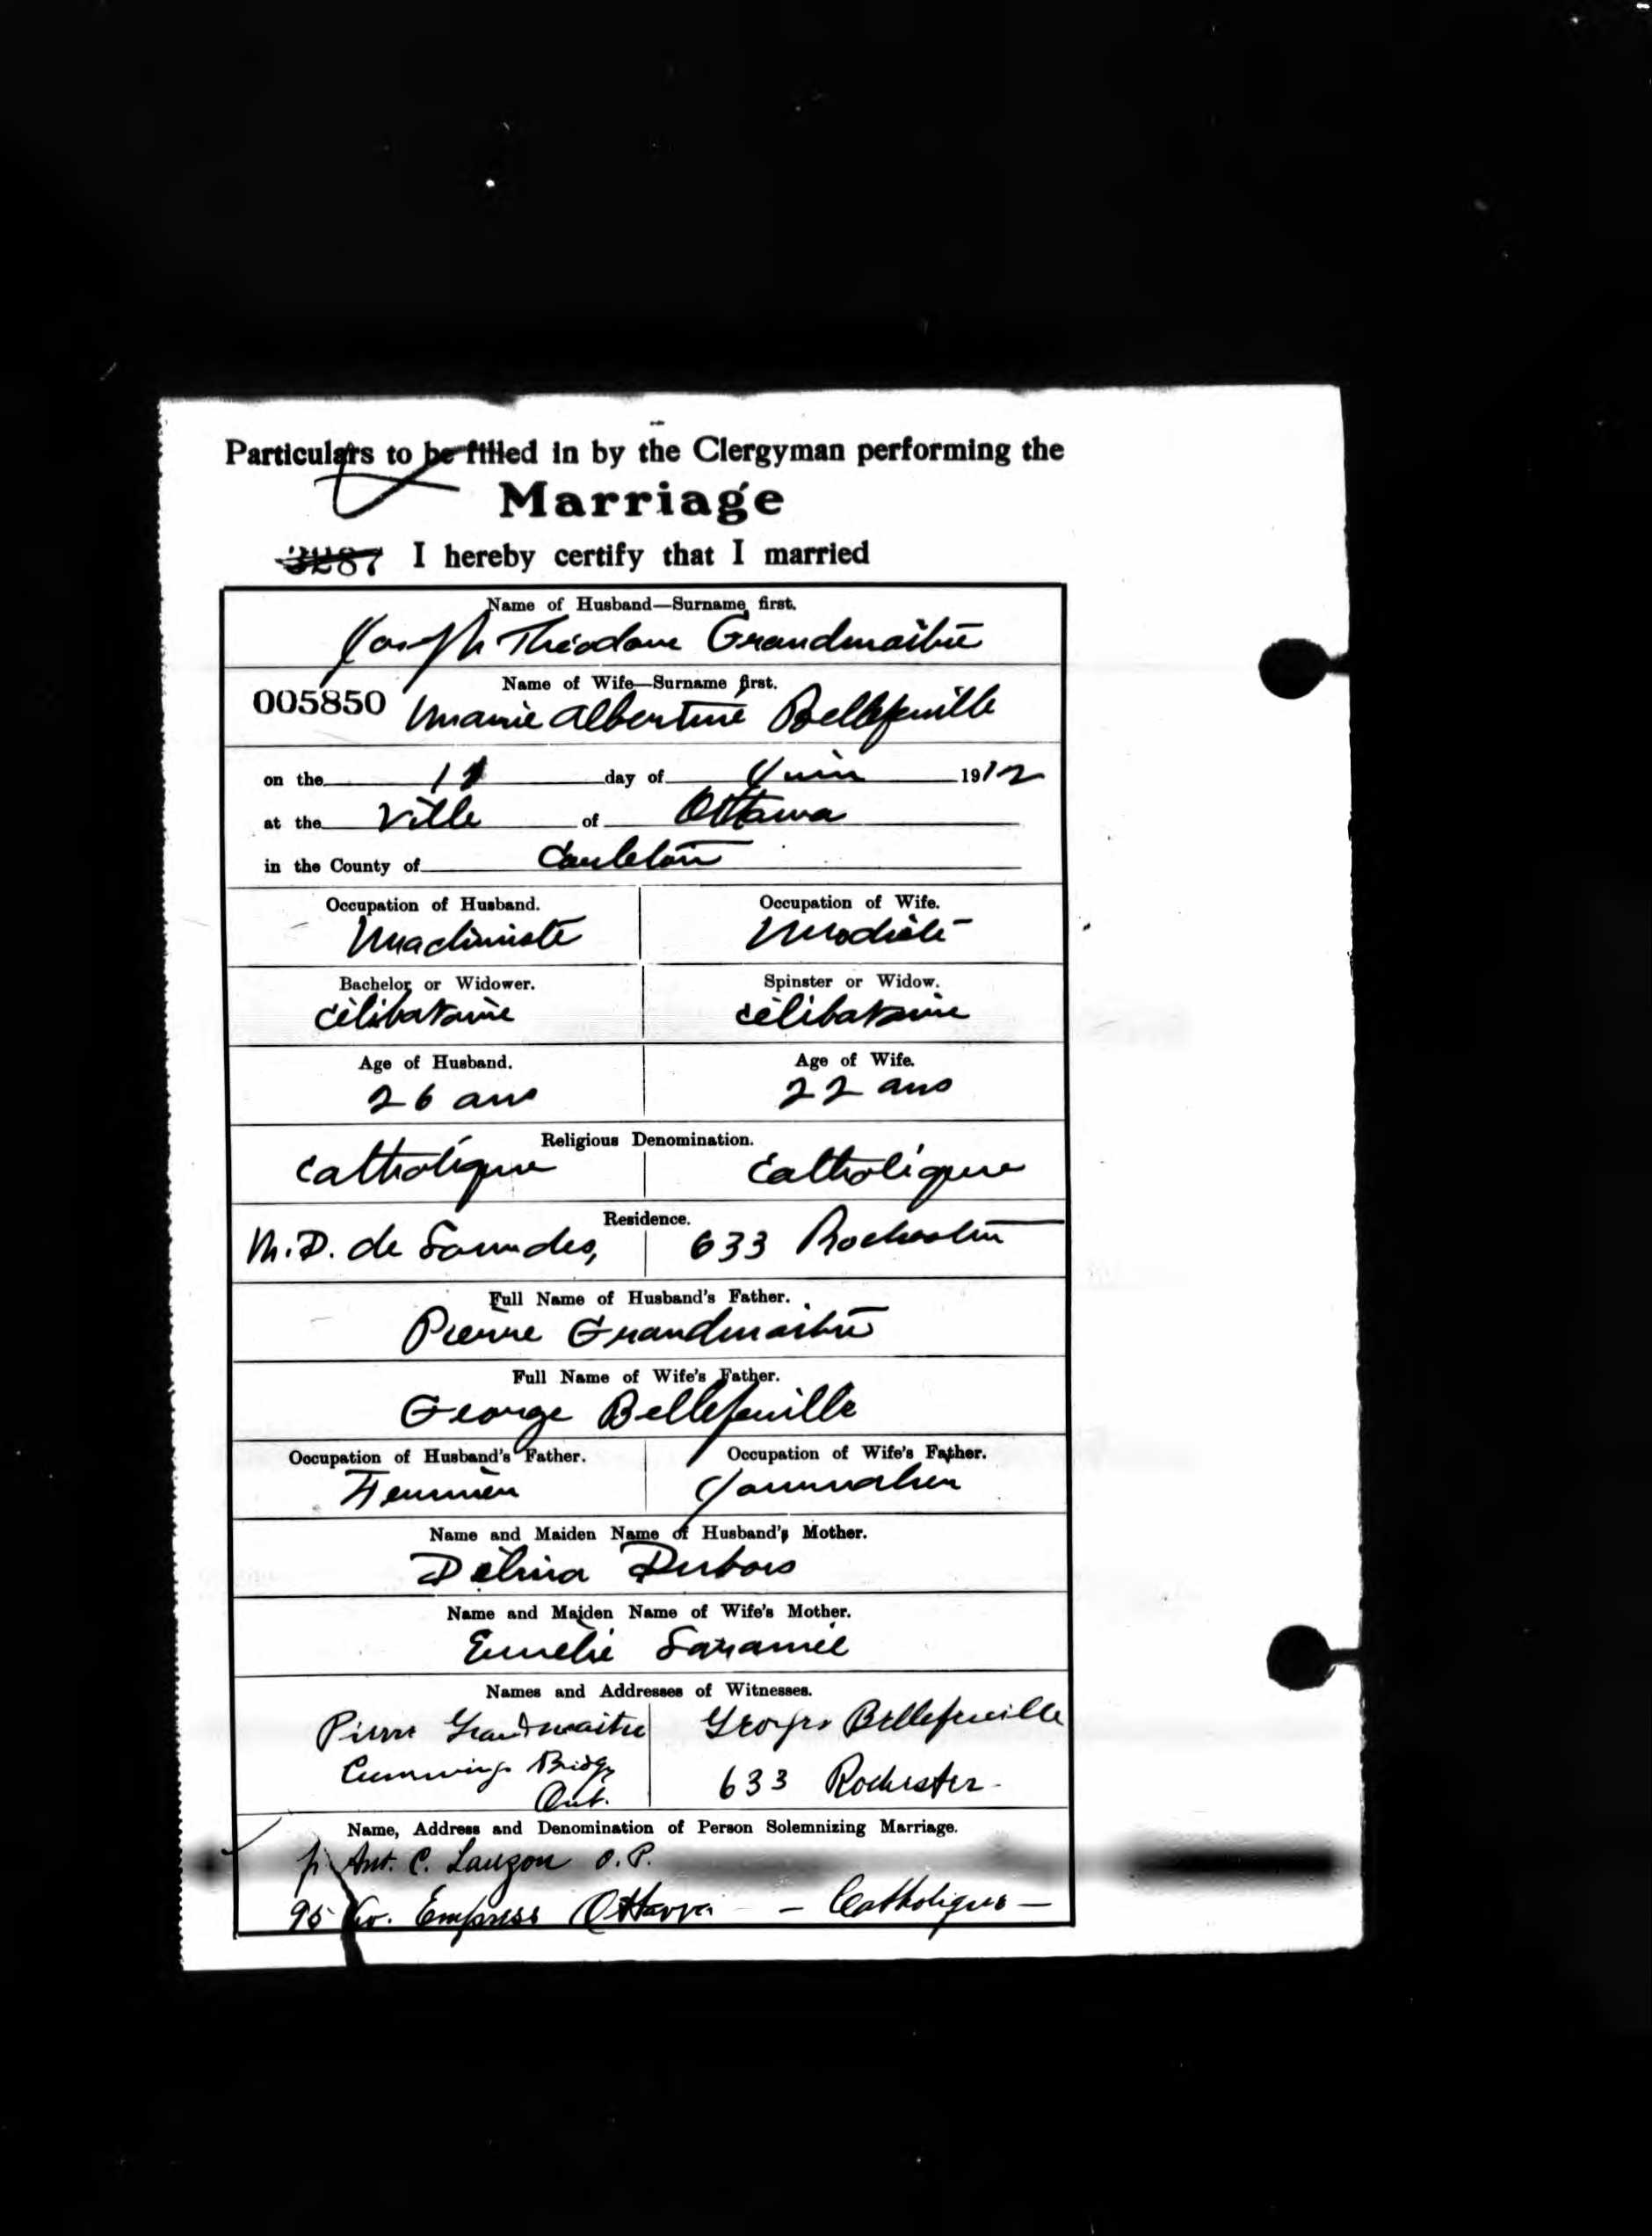 Particulars to be filled in by the Clergyman performing the
Marriage
3287 I hereby certify that I married
Name of Husband—Surname first.
Joseph Théodore Grandmaître
005850
Name of Wife—Surname first.
Marie Albertine Bellefeuille
on the day of Juin 1912
at the Ville of Ottawa
in the County of Carleton
Occupation of Husband. Occupation of Wife.
Machiniste Modiste
Bachelor or Widower. Spinster or Widow.
célibataire célibataire
Age of Husband. Age of Wife.
26 ans 22 ans
Religious Denomination.
Catholique Catholique
Residence.
N.D. de Lourdes, 633 Rochester
Full Name of Husband's Father.
Pierre Grandmaître
Full Name of Wife's Father.
George Bellefeuille
Occupation of Husband's Father. Occupation of Wife's Father.
Fermier Journalier
Name and Maiden Name of Husband's Mother.
Délina Dubois
Name and Maiden Name of Wife's Mother.
Emélie Laramée
Names and Addresses of Witnesses.
Pierre Grandmaitre Georges Bellefeuille
Cummings Bridge 633 Rochester
Ont.
Name, Address and Denomination of Person Solemnizing Marriage.
Ant. C. Lauzon O.P.
95 Empress Ottawa — Catholique —